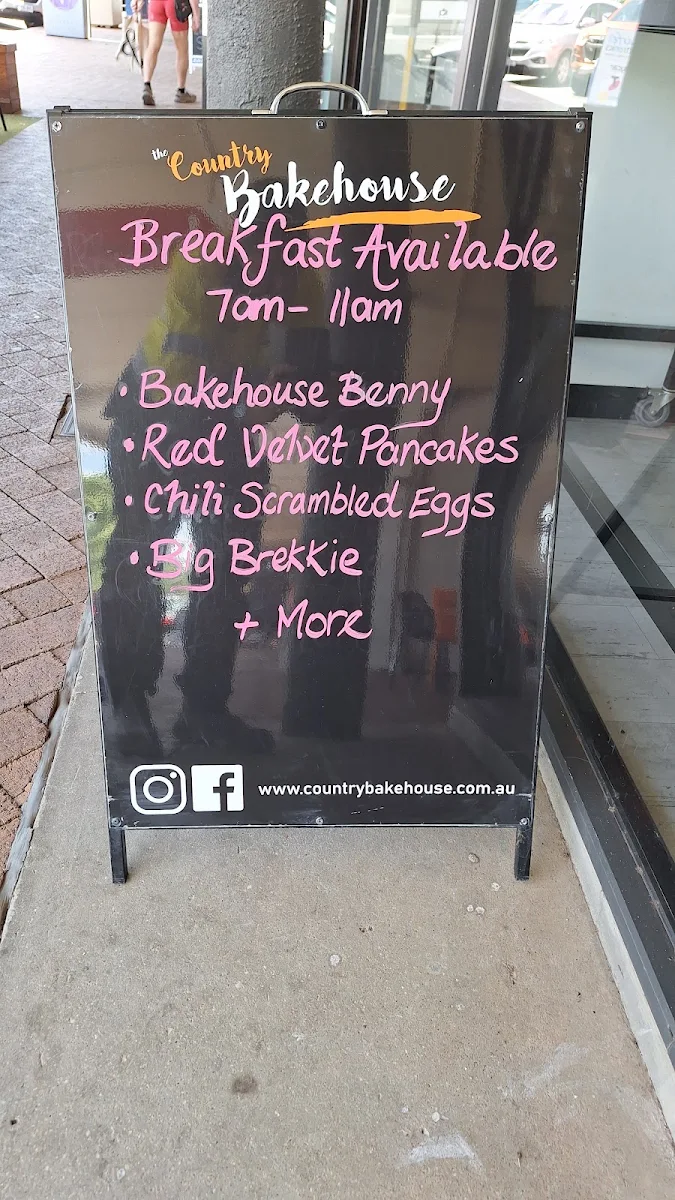 the Country
Bakehouse
Breakfast Available
7am - 11am
• Bakehouse Benny
• Red Velvet Pancakes
• Chili Scrambled Eggs
• Big Brekkie
+ More
www.countrybakehouse.com.au